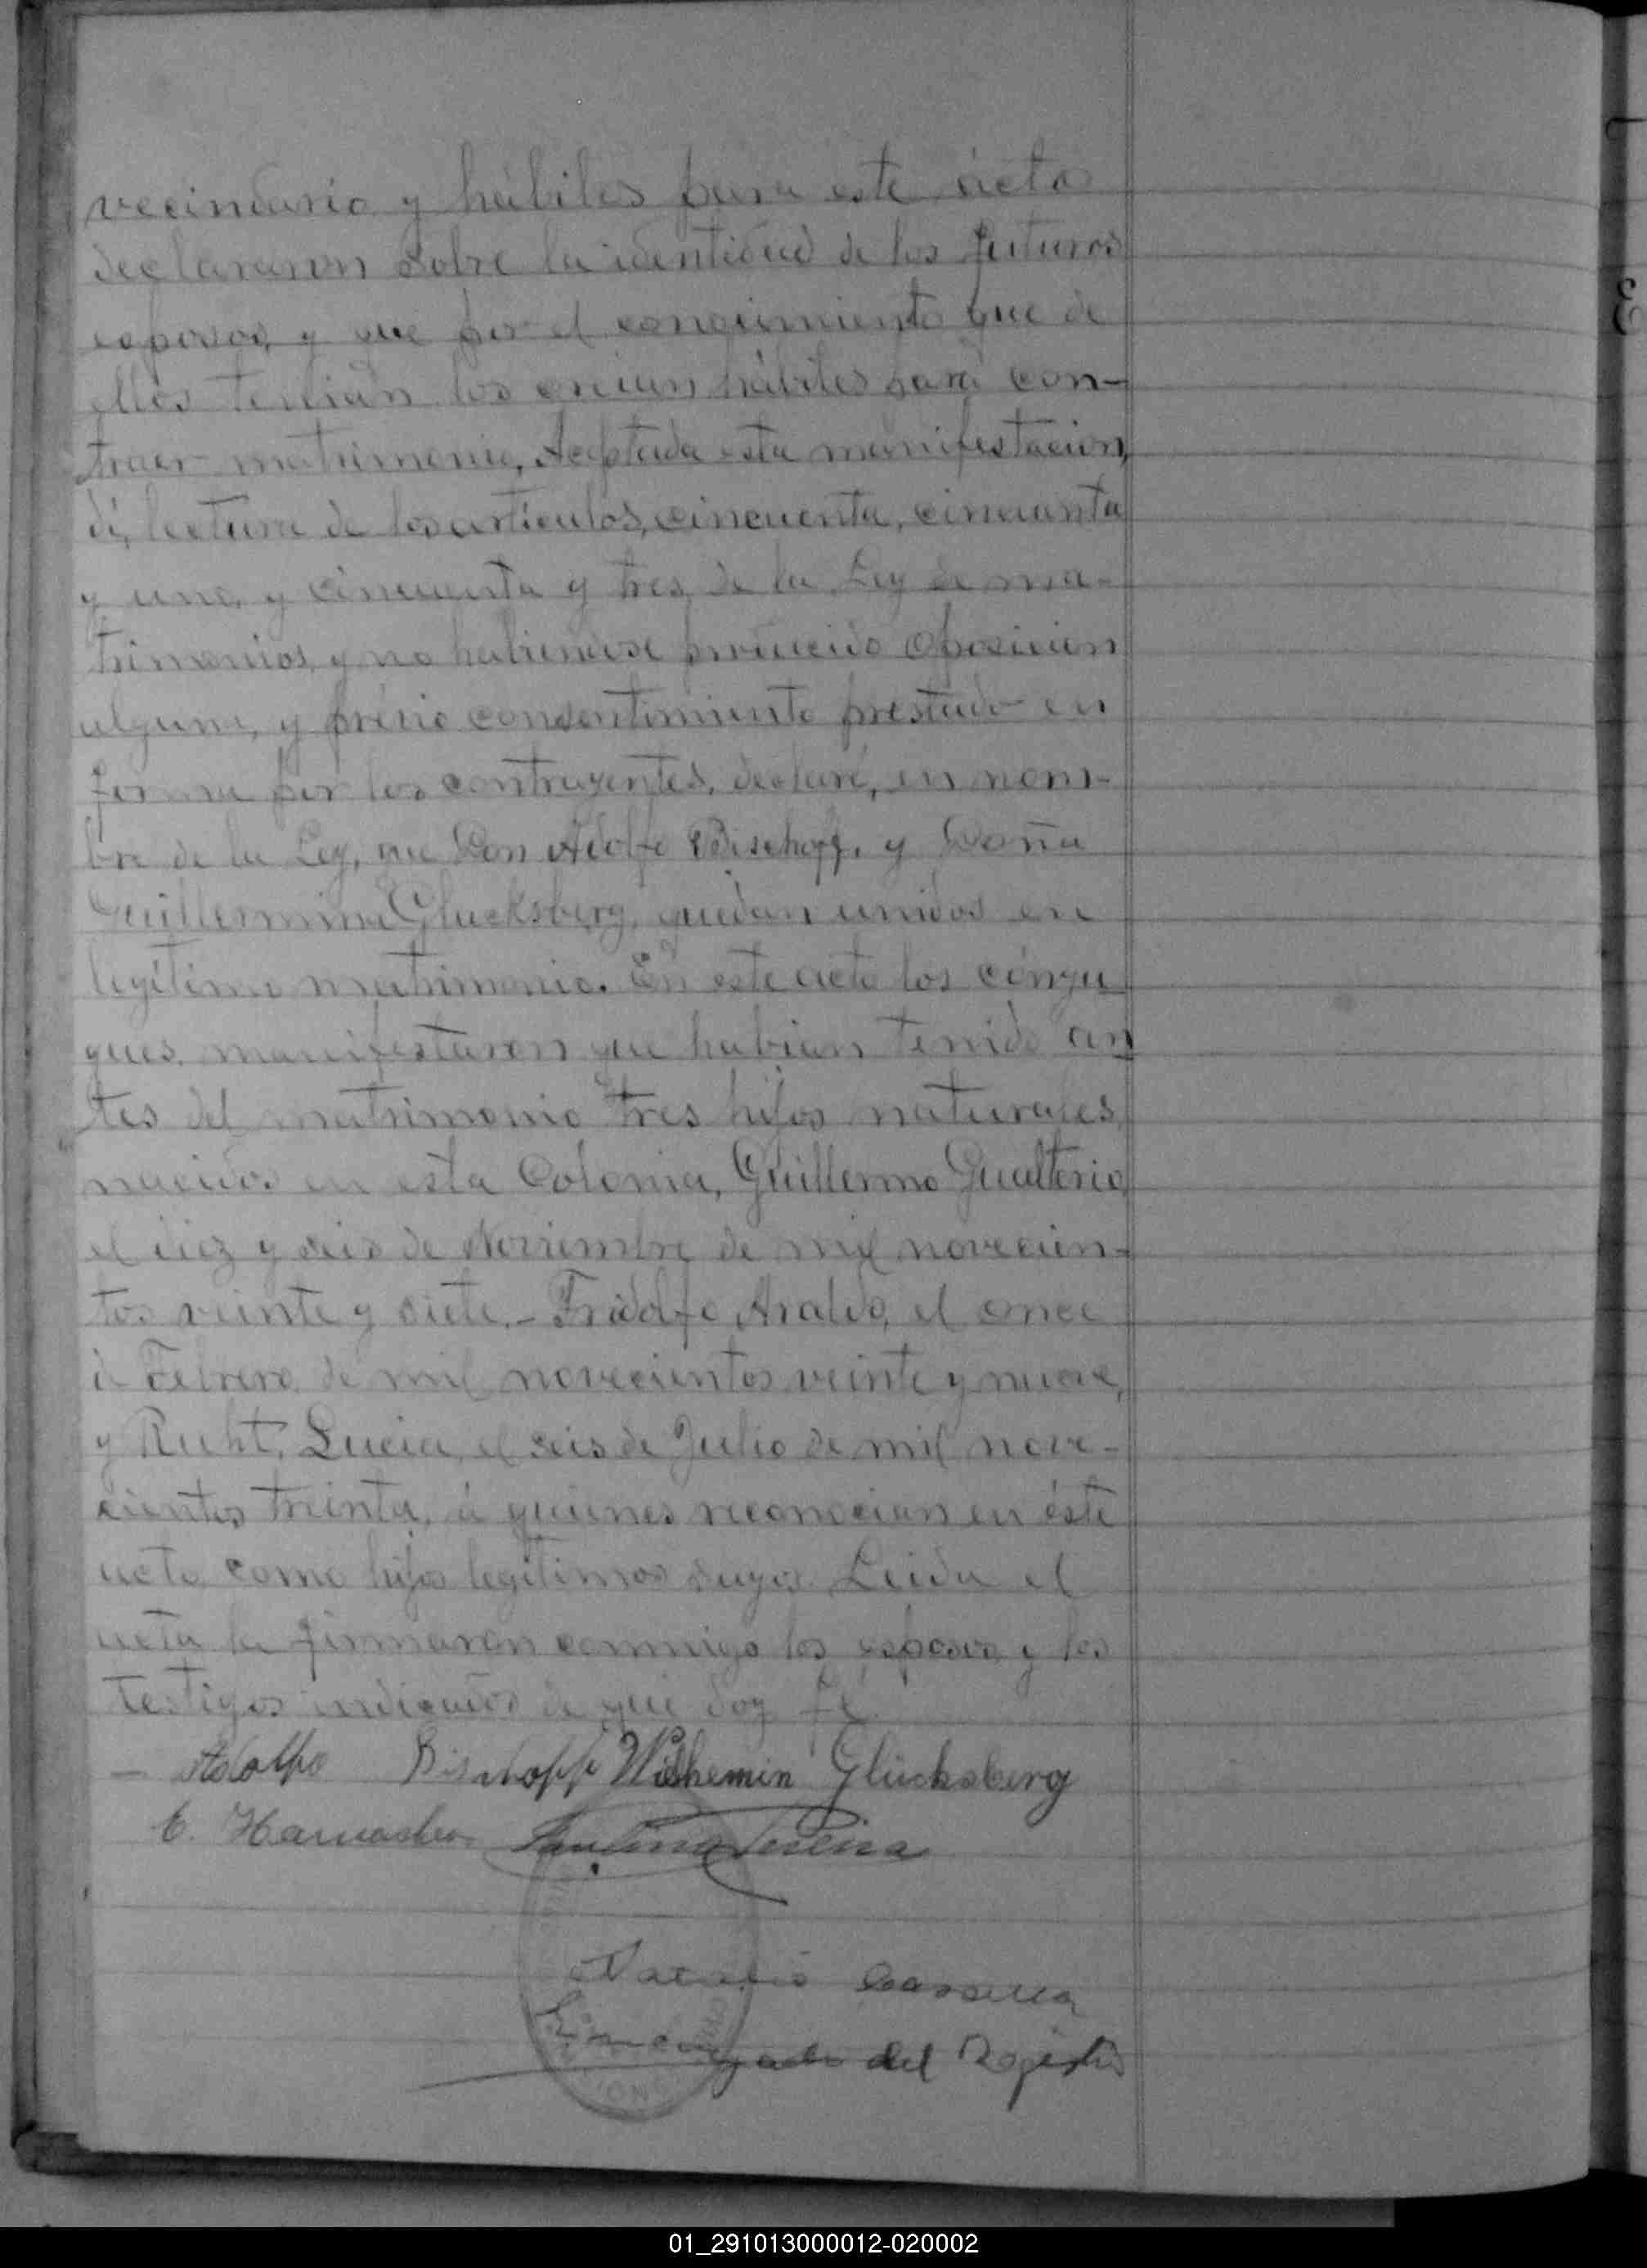 vecindario y hábiles para este acto
declararon sobre la identidad de los futuros
esposos, y que por el conocimiento que de
ellos tenian los creian hábiles para con-
traer matrimonio, Aceptada esta manifestacion,
dí, lectura de los artículos, cincuenta, cincuenta
y uno, y cincuenta y tres, de la Ley de ma-
trimonios, y no habiendose producido oposicion
alguna, y prévio consentimiento prestado en
forma por los contrayentes, declaré, en nom-
bre de la Ley, que Don Adolfo Bischoff, y Doña
Guillermina Glucksberg, quedan unidos en
legítimo matrimonio. En este acto los cónyu
gues, manifestaron que habian tenido an
tes del matrimonio tres hijos naturales,
nacidos en esta Colonia, Guillermo Gualterio,
el diez y seis de Noviembre de mil novecien-
tos veinte y siete.- Fridolfo Araldo, el once
de Febrero de mil novecientos veinte y nueve,
y Ruht, Lucia, el seis de Julio de mil nove-
cientos treinta, á quienes reconocian en éste
acto como hijos legítimos suyos. Leida el
acta la firmaron conmigo los esposos, y los
testigos indicados de que doy fé.
Adolfo Bischoff Wilhemin Glücksberg
E. Pereira
Natalio
Encargado del Registro
01_291013000012-020002